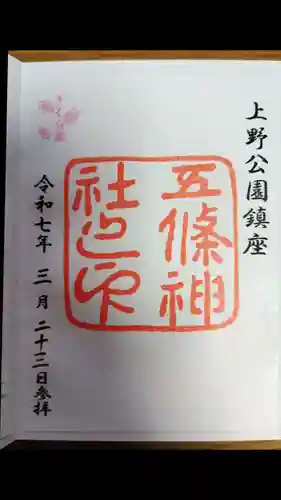 上野公園鎮座
五條神
社之印
令和七年 三月 二十三日参拝
さくら